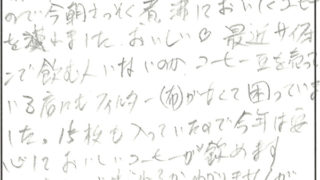 ので今朝さっそく煮沸においたコーヒー
を飲みました おいしい♡ 最近サイフォ
ンで飲む人いないのか コーヒー豆を売って
いる店にもフィルター(布)がなくて困っていま
した。15枚も入っていたので今年は安
心しておいしいコーヒーが飲めます